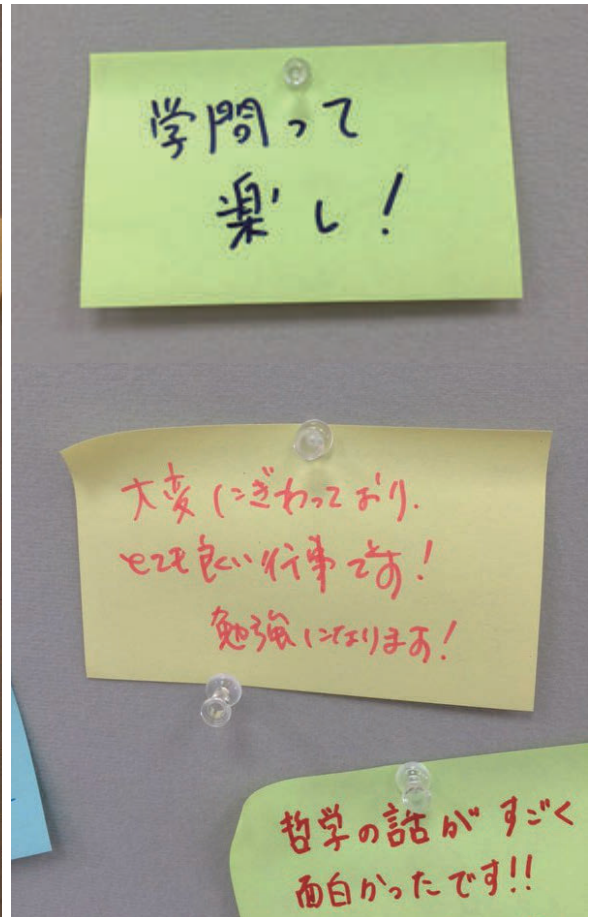 学問って
楽し！
大変にぎわっており、
とても良い行事です！
勉強になります！
哲学の話がすごく
面白かったです!!